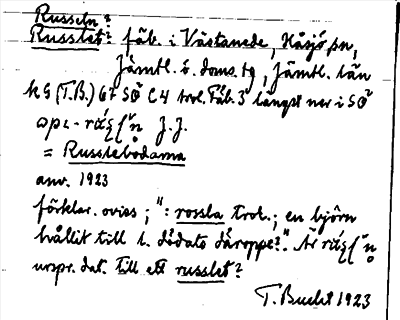 Russeln?
Russlet? fäb. i Västanede, Håsjö sn,
Jämtl. ö. doms. tg, Jämtl. län
k G (T.B.) 6f SÖ C4 trol. Fäb. 3 längst ner i SÖ
J.J.
= Russlebodarna
anv. 1923
förklar. oviss; ": rossla trol.; en björn
hållit till l. dödats däroppe?". Är
urspr. dat. till ett russlet?
T. Bucht 1923